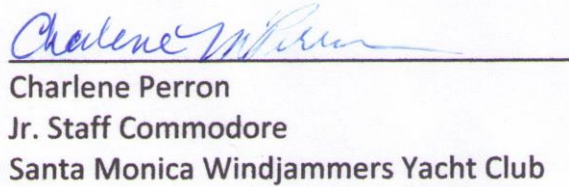 Charlene M Perron
Charlene Perron
Jr. Staff Commodore
Santa Monica Windjammers Yacht Club